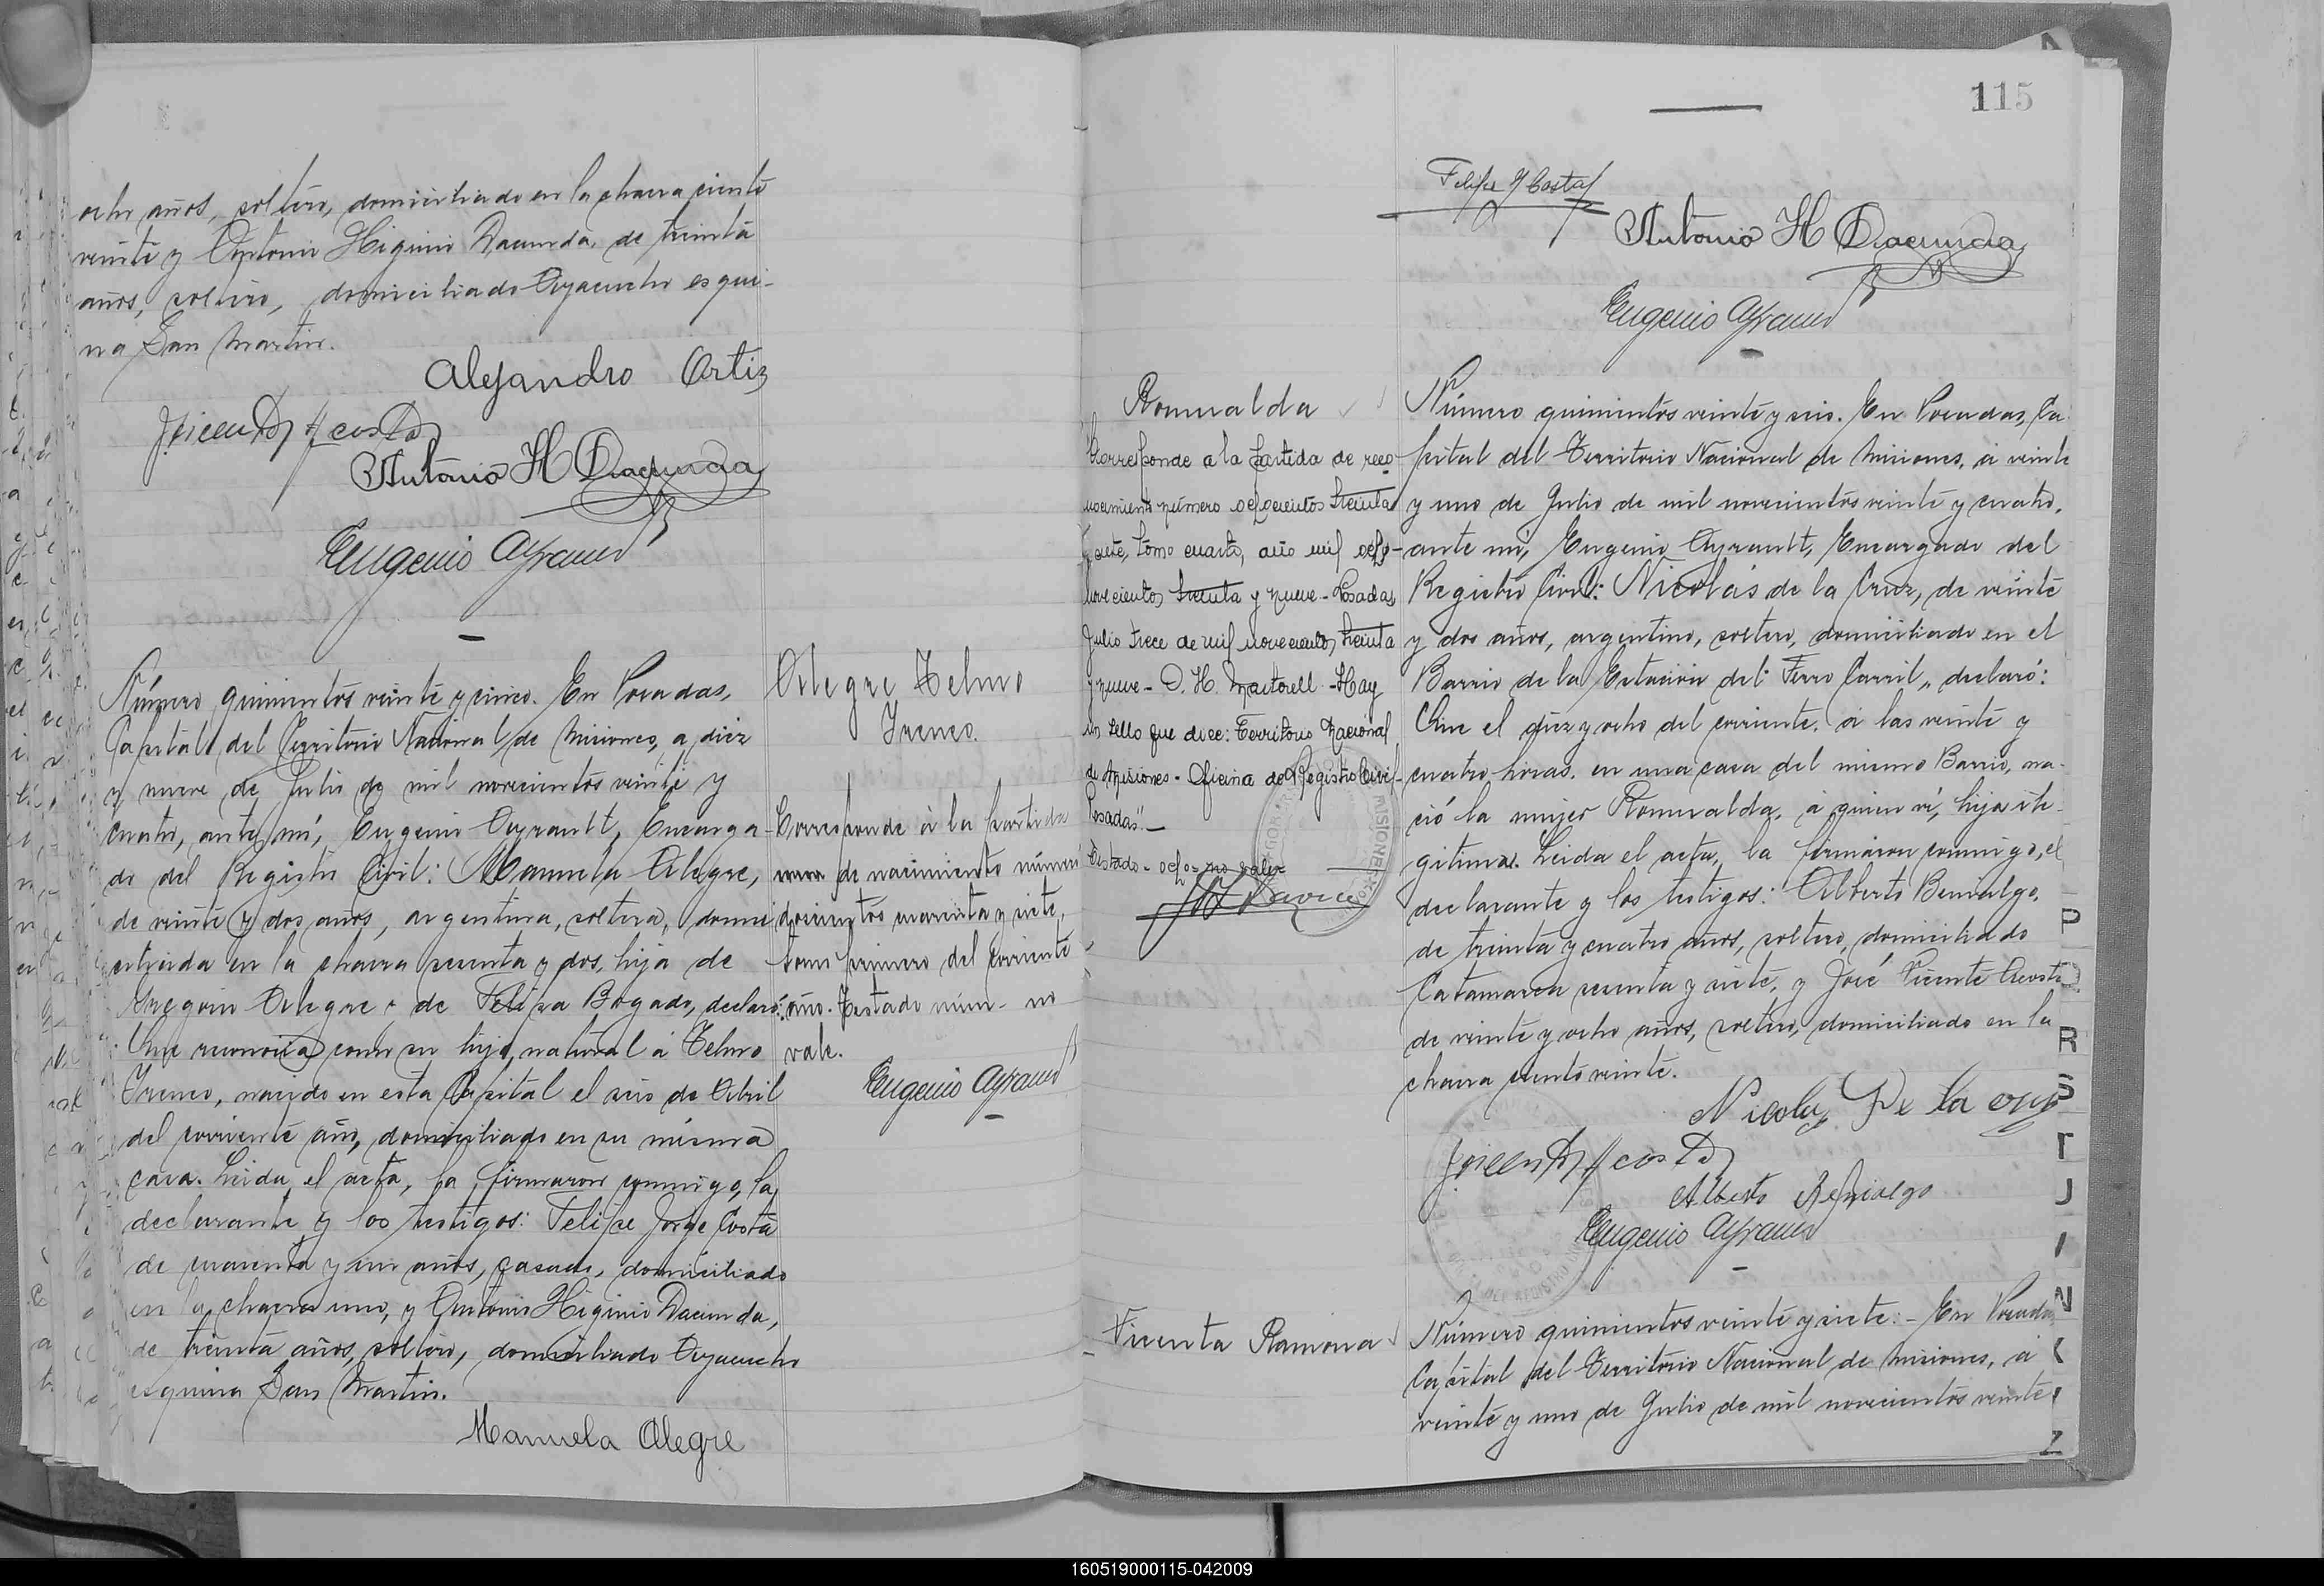 ocho años, soltero, domiciliado en la chacra ciento
veinte y Antonio Higinio Dacunda, de treinta
años, soltero, domiciliado Ayacucho esqui-
na San Martin.
Alejandro Ortiz
JVicente Acosta
Antonio H Dacunda
Eugenio Ayrault
Número quinientos veinte y cinco. En Posadas,
Capital del Territorio Nacional de Misiones, a diez
y nueve de Julio de mil novecientos veinte y
cuatro, ante mí, Eugenio Ayrault, Encarga-
do del Registro Civil: Manuela Alegre,
de veinte y dos años, argentina, soltera, domi
ciliada en la chacra sesenta y dos, hija de
Gregorio Alegre y de Felisa Bogado, declaró:
Que reconocía como su hijo natural á Telmo
Ireneo, nacido en esta Capital el seis de Abril
del corriente año, domiciliado en su misma
casa. Leida el acta, la firmaron conmigo, la
declarante y los testigos: Felipe Jorge Costa
de cuarenta y un años, casado, domiciliado
en la chacra uno, y Antonio Higinio Dacunda,
de treinta años, soltero, domiciliado Ayacucho
esquina San Martin.
Manuela Alegre
Alegre Telmo
Ireneo.
Corresponde á la partida
de nacimiento número
doscientos cuarenta y siete,
tomo primero del corriente
año. Testado núm- no
vale.
Eugenio Ayrault
115
Felipe J Costa
Antonio H Dacunda
Eugenio Ayrault
Romualda
Corresponde a la partida de reco-
nocimiento número ochocientos treinta
y siete, tomo cuarto, año mil ocho-
novecientos treinta y nueve - Posadas,
Julio trece de mil novecientos treinta
y nueve - D. H. Martorell - Hay
un sello que dice: Territorio Nacional
de Misiones - Oficina del Registro Civil-
Posadas" -
Testado - ocho - no vale
Número quinientos veinte y seis. En Posadas, Ca
pital del Territorio Nacional de Misiones, á veinte
y uno de Julio de mil novecientos veinte y cuatro,
ante mí, Eugenio Ayrault, Encargado del
Registro Civil: Nicolás de la Cruz, de veinte
y dos años, argentino, soltero, domiciliado en el
Barrio de la Estación del Ferro Carril, declaró:
Que el diez y ocho del corriente, á las veinte y
cuatro horas, en una casa del mismo Barrio, na-
ció la mujer Romualda, á quien ví, hija ile-
gitima. Leida el acta, la firmaron conmigo, el
declarante y los testigos: Alberto Benialgo,
de treinta y cuatro años, soltero, domiciliado
Catamarca sesenta y siete, y José Vicente Acosta
de veinte y ocho años, soltero, domiciliado en la
chacra ciento veinte.
Nicolas De la cruz
JVicente Acosta
Alberto Benialgo
Eugenio Ayrault
Vicenta Ramona
Número quinientos veinte y siete: - En Posadas,
Capital del Territorio Nacional de Misiones, á
veinte y uno de Julio de mil novecientos veinte
P
R
S
T
N
Z
160519000115-042009